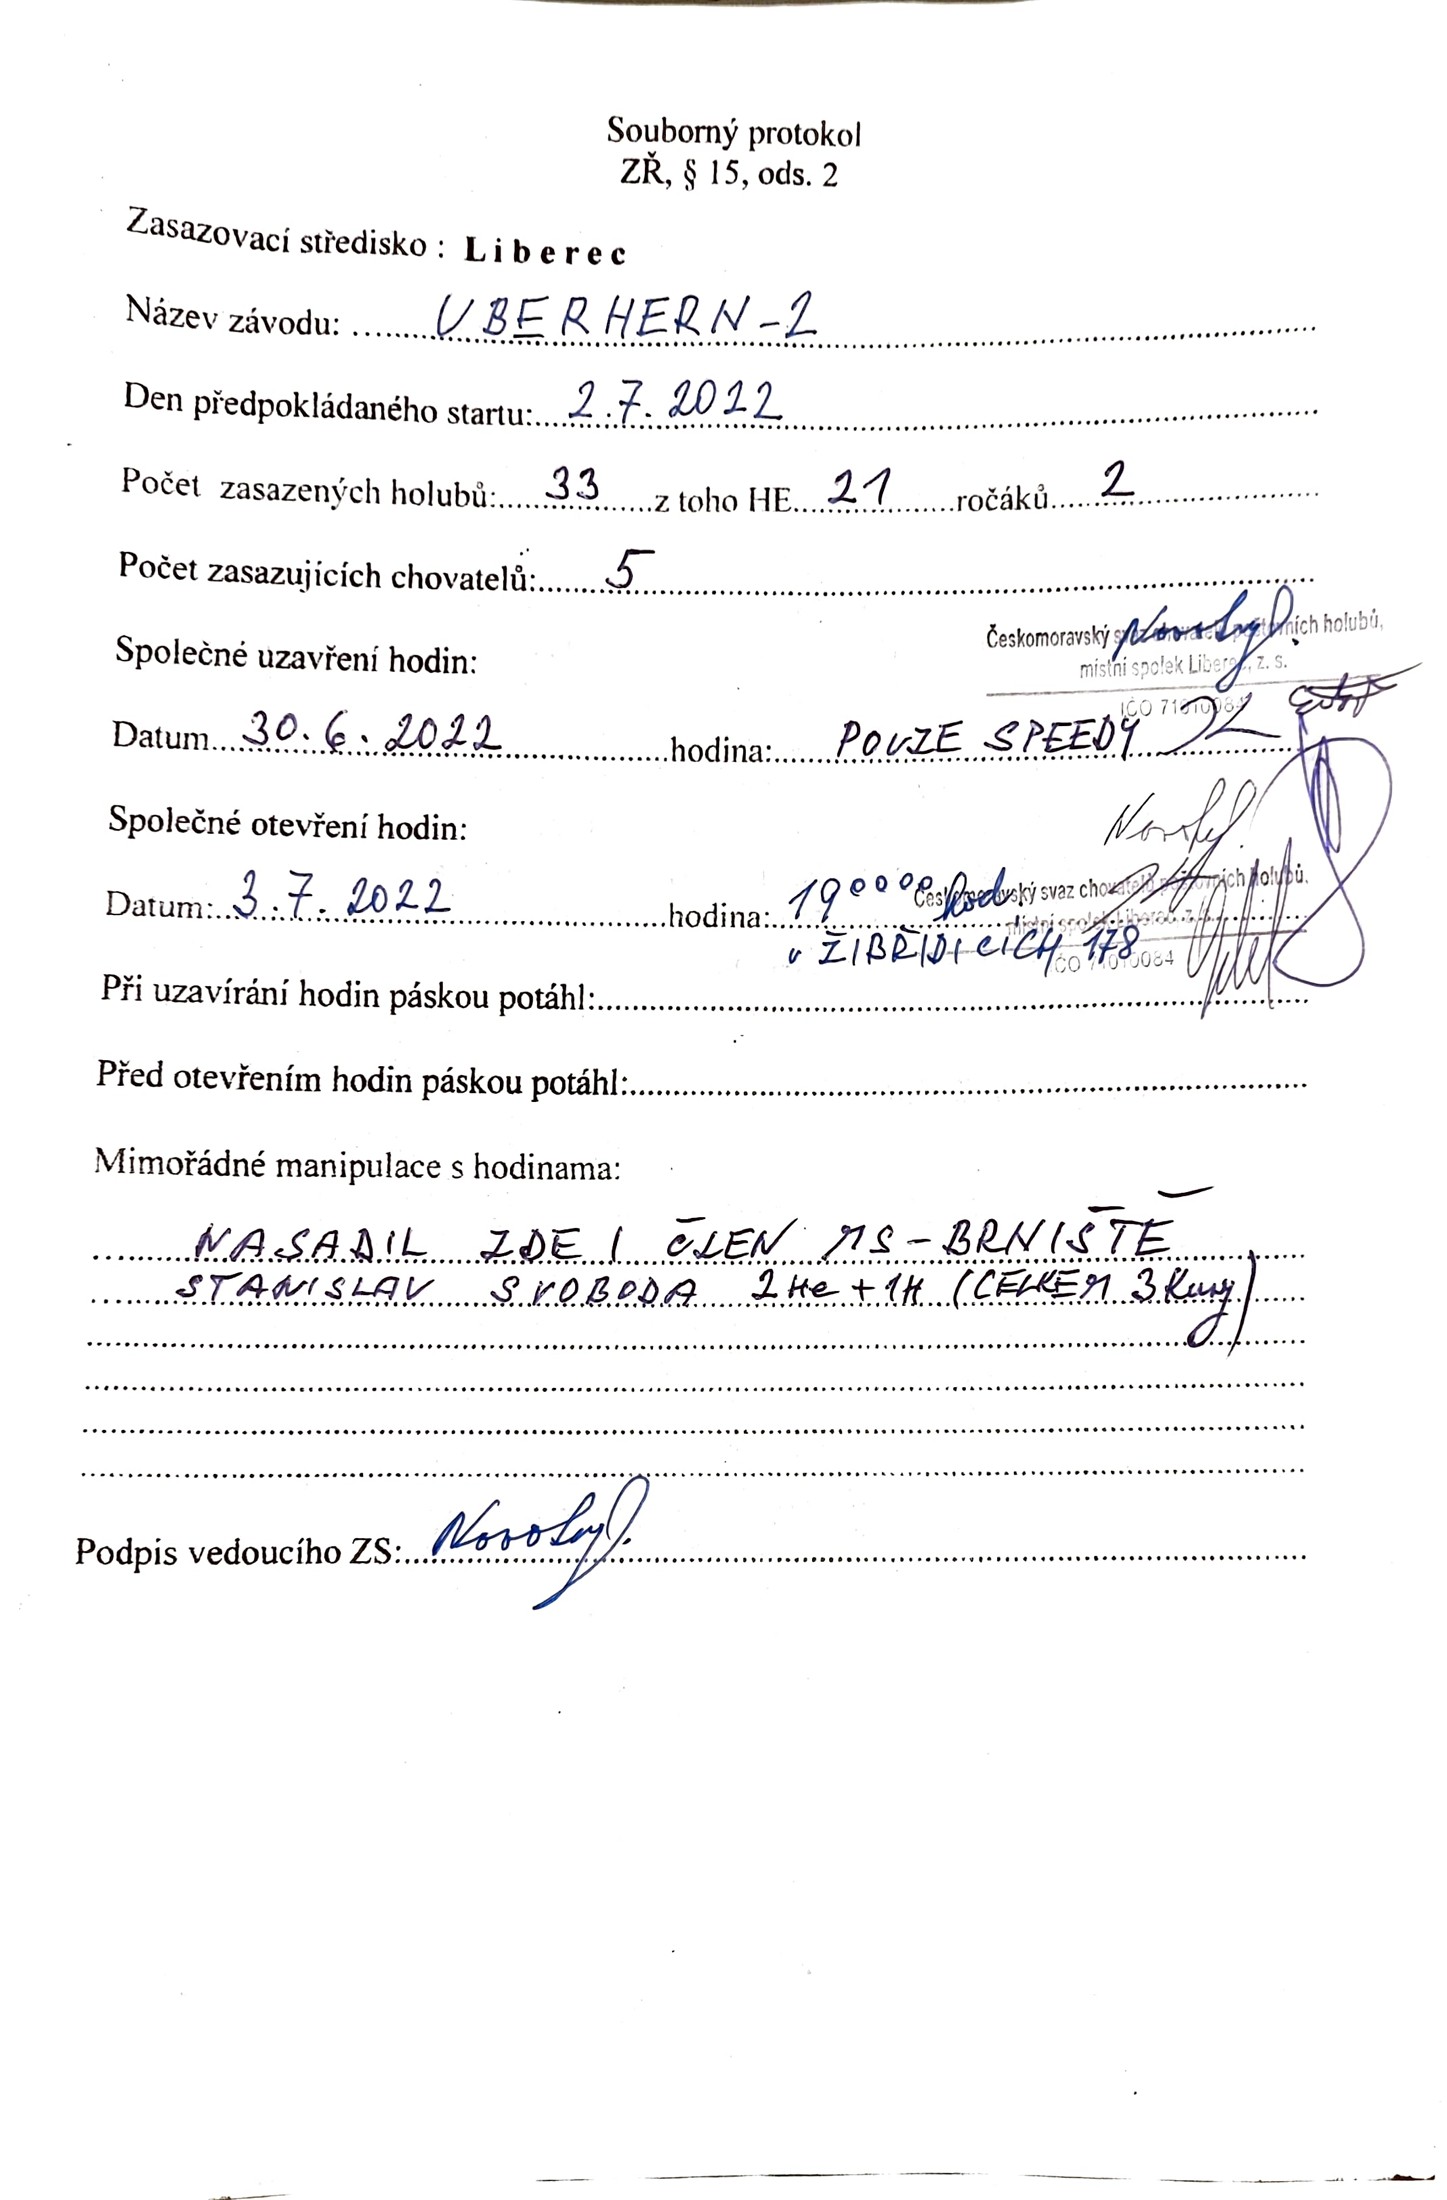 Souborný protokol
ZŘ, § 15, ods. 2
Zasazovací středisko : Liberec
Název závodu: UBERHERN-2
Den předpokládaného startu: 2.7.2022
Počet zasazených holubů: 33 z toho HE 21 ročáků 2
Počet zasazujících chovatelů: 5
Českomoravský svaz chovatelů poštovních holubů,
místní spolek Liberec, z. s.
Společné uzavření hodin:
IČO 71010084
Datum 30.6.2022 hodina: POUZE SPEEDY
Společné otevření hodin:
Českomoravský svaz chovatelů poštovních holubů,
Datum: 3.7.2022 hodina: 19 00 00 hod
místní spolek Liberec, z. s.
v ŽIBŘIDICÍCH 178
IČO 71010084
Při uzavírání hodin páskou potáhl:
Před otevřením hodin páskou potáhl:
Mimořádné manipulace s hodinama:
NASADIL ZDE 1 ČLEN MS-BRNIŠTĚ
STANISLAV SVOBODA 2He + 1H (CELKEM 3 kusy)
Podpis vedoucího ZS: Novotný J.